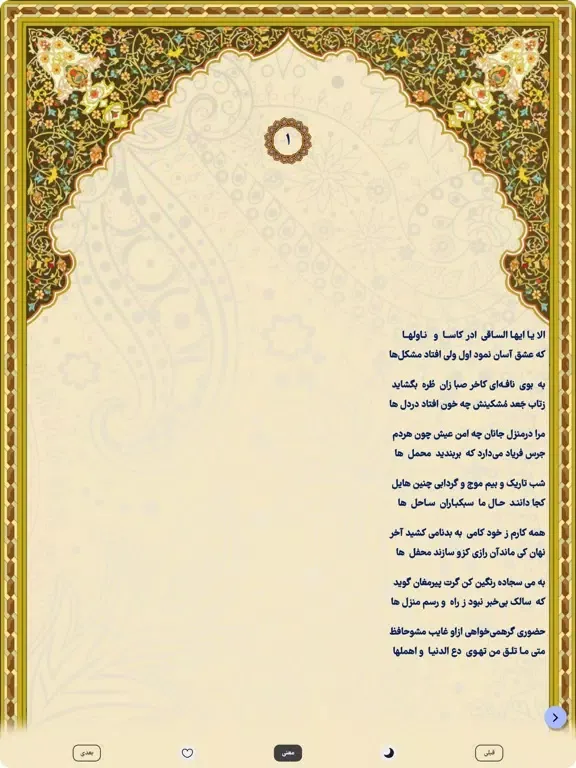 ۱
الا یا ایها الساقی ادر کاسا و ناولها
که عشق آسان نمود اول ولی افتاد مشکل‌ها
به بوی نافه‌ای کاخر صبا زان طُره بگشاید
زتاب جَعد مُشکینش چه خون افتاد دردل ها
مرا درمنزل جانان چه امن عیش چون هردم
جرس فریاد می‌دارد که بربندید محمل ها
شب تاریک و بیم موج و گردابی چنین هایل
کجا دانند حال ما سبکباران ساحل ها
همه کارم ز خود کامی به بدنامی کشید آخر
نهان کی ماندآن رازی کزو سازند محفل ها
به می سجاده رنگین کن گرت پیرمغان گوید
که سالک بی‌خبر نبود ز راه و رسم منزل ها
حضوری گرهمی‌خواهی ازاو غایب مشوحافظ
متی ما تلق من تهوی دع الدنیا و اهملها
قبلی
معنی
بعدی